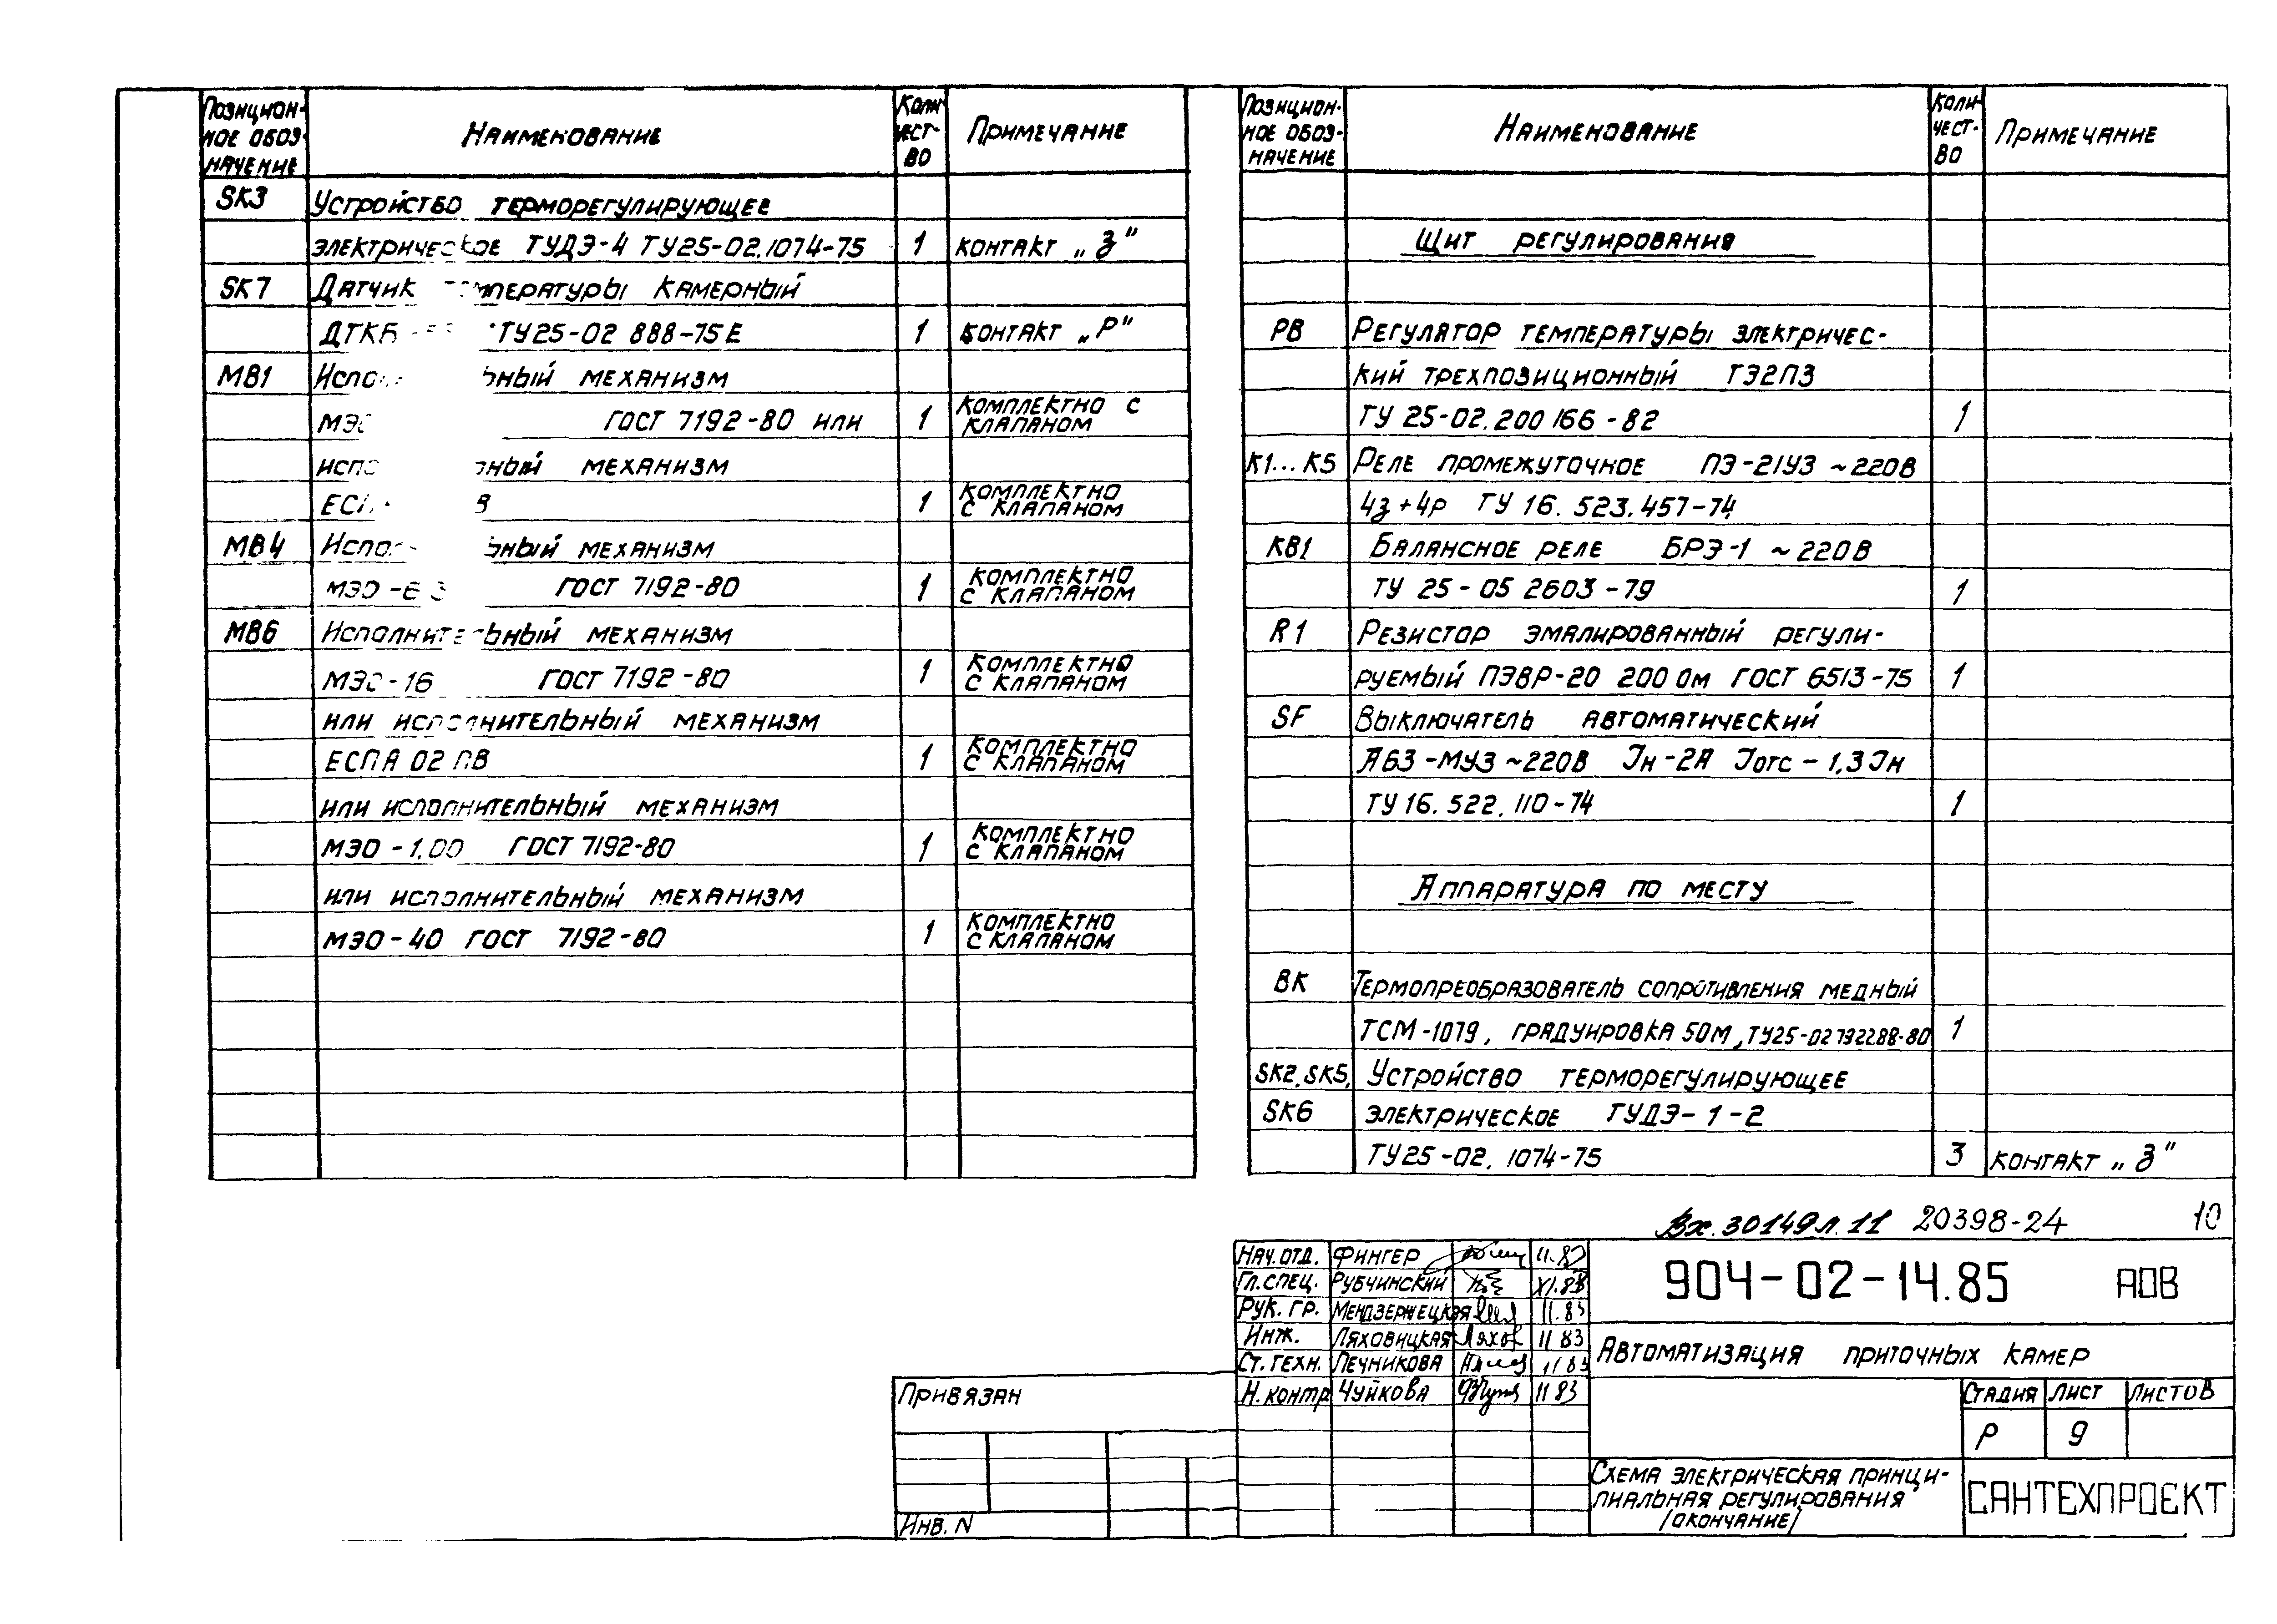 Позицион-
ное обоз-
начение
Наименование
Коли
чест-
во
Примечание
SK3 Устройство терморегулирующее
электрическое ТУДЭ-4 ТУ25-02.1074-75 1 контакт „З"
SK7 Датчик температуры камерный
ДТКБ ТУ25-02 888-75Е 1 контакт „Р"
МВ1 Исполнительный механизм
МЭО ГОСТ 7192-80 или 1 комплектно с клапаном
исполнительный механизм
1 комплектно с клапаном
МВ4 Исполнительный механизм
МЭО ГОСТ 7192-80 1 комплектно с клапаном
МВ6 Исполнительный механизм
МЭО-16 ГОСТ 7192-80 1 комплектно с клапаном
или исполнительный механизм
ЕСПА 02 ПВ 1 комплектно с клапаном
или исполнительный механизм
МЭО-1,00 ГОСТ 7192-80 1 комплектно с клапаном
или исполнительный механизм
МЭО-40 ГОСТ 7192-80 1 комплектно с клапаном
Позицион-
ное обоз-
начение
Наименование
Коли-
чест-
во
Примечание
Щит регулирования
РВ Регулятор температуры электричес-
кий трехпозиционный ТЭ2ПЗ
ТУ 25-02.200 166-82 1
К1...К5 Реле промежуточное ПЭ-21УЗ ~220В
4з+4р ТУ 16.523.457-74
КВ1 Балансное реле БРЭ-1 ~220В
ТУ 25-05 2603-79 1
R1 Резистор эмалированный регули-
руемый ПЭВР-20 200 Ом ГОСТ 6513-75 1
SF Выключатель автоматический
А63-МУЗ ~220В Iн-2А Iотс-1,3Iн
ТУ 16.522.110-74 1
Аппаратура по месту
ВК Термопреобразователь сопротивления медный
ТСМ-1079, градуировка 50М, ТУ25-02 792288-80 1
SK2, SK5, Устройство терморегулирующее
SK6 электрическое ТУДЭ-1-2
ТУ25-02.1074-75 3 контакт „З"
Вх. 30149л.11 20398-24 10
Нач. отд. Фингер 11.83
Гл. спец. Рубчинский XI.83
Рук. гр. Мендзержецкая 11.83
Инж. Ляховицкая 11 83
Ст. техн. Печникова 11 83
Н. контр Чуйкова 11 83
904-02-14.85 АОВ
Автоматизация приточных камер
Стадия Лист Листов
Р 9
Схема электрическая принци-
пиальная регулирования
/окончание/
САНТЕХПРОЕКТ
Привязан
Инв. N